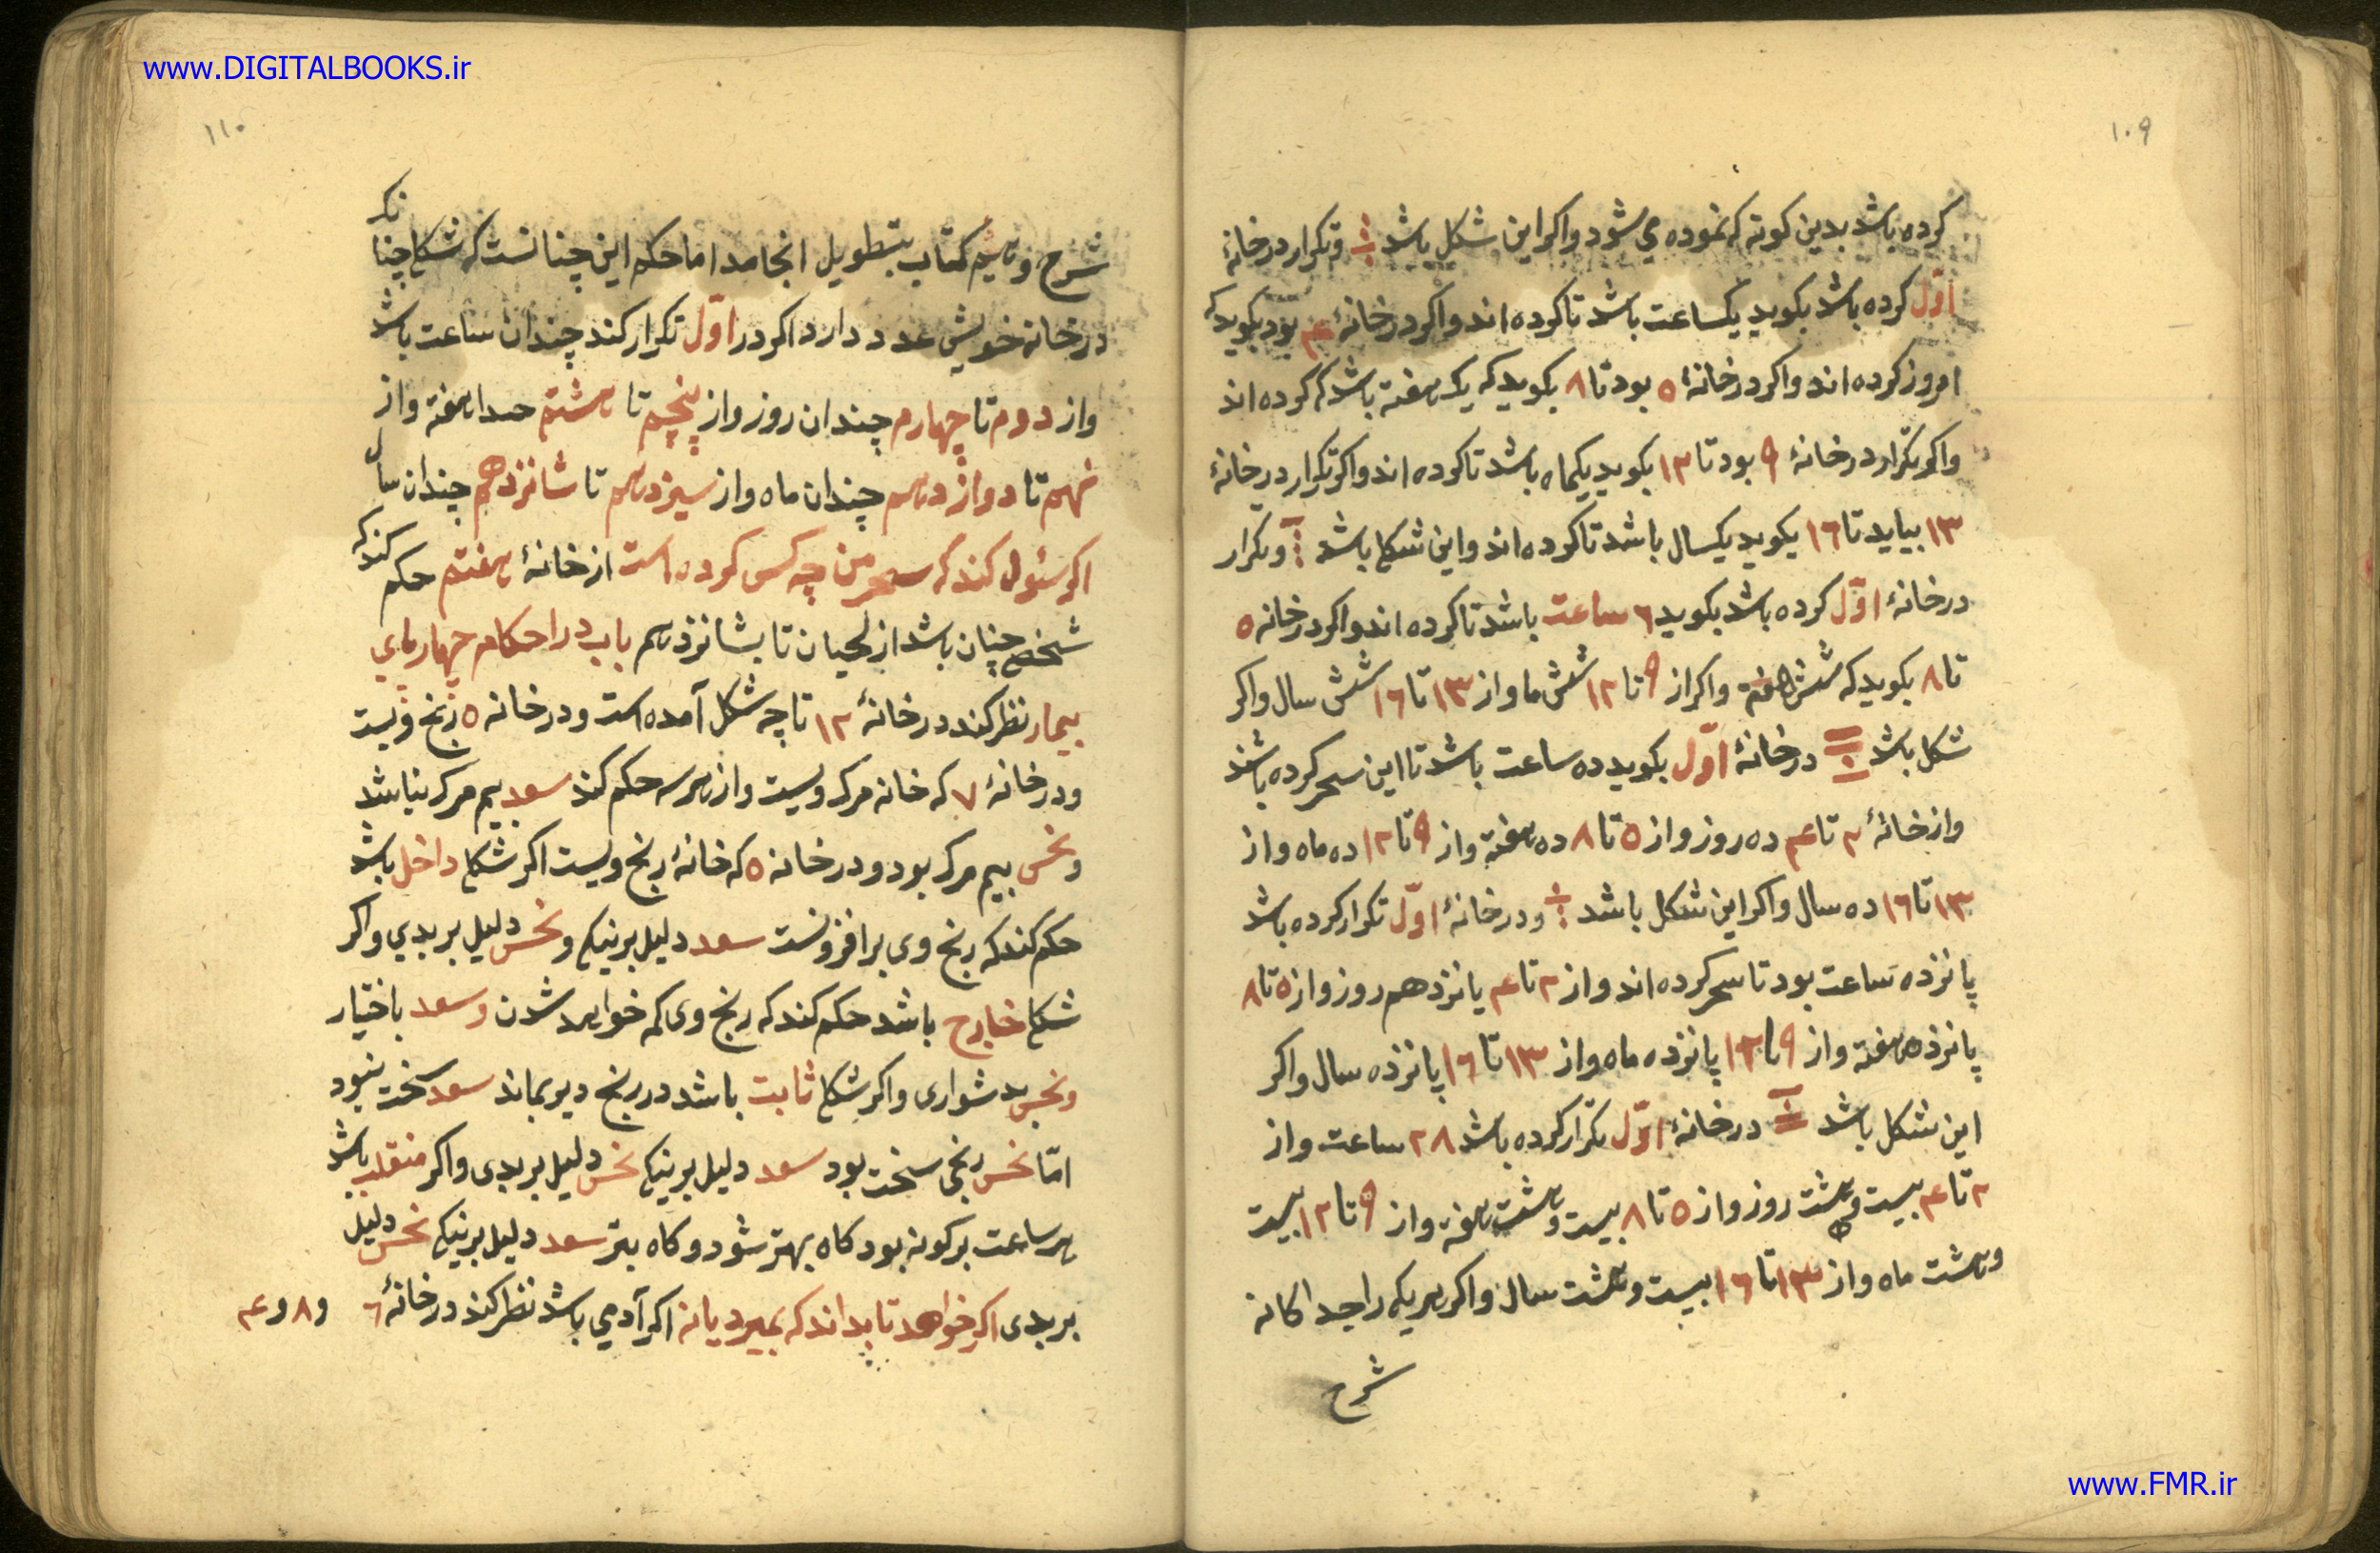 www.DIGITALBOOKS.ir
۱۰۹
کرده باشد بدین کونه که نموده می شود واکر این شکل باشد و تکرار در خانهٔ
اوّل کرده باشد بکوید یکساعت باشد تا کرده اند واکر در خانهٔ ۴ بود بکوید که
امروز کرده اند واکر در خانهٔ ۵ بود تا ۸ بکوید که یک هفته باشد که کرده اند
واکر تکرار در خانهٔ ۹ بود تا ۱۲ بکوید یکماه باشد تا کرده اند واکر تکرار در خانهٔ
۱۳ بیاید تا ۱۶ بکوید یکسال باشد تا کرده اند واین شکل باشد و تکرار
در خانهٔ اوّل کرده باشد بکوید ۶ ساعت باشد تا کرده اند واکر در خانه ۵
تا ۸ بکوید که شش هفته واکر از ۹ تا ۱۲ شش ما واز ۱۳ تا ۱۶ شش سال واکر
شکل باشد در خانهٔ اوّل بکوید ده ساعت باشد تا این سحر کرده باشند
واز خانهٔ ۲ تا ۴ ده روز واز ۵ تا ۸ ده هفته واز ۹ تا ۱۲ ده ماه واز
۱۳ تا ۱۶ ده سال واکر این شکل باشد ودر خانهٔ اوّل تکرار کرده باشد
پانزده ساعت بود تا سحر کرده اند واز ۲ تا ۴ پانزدهم روز واز ۵ تا ۸
پانزده هفته واز ۹ تا ۱۲ پانزده ماه واز ۱۳ تا ۱۶ پانزده سال واکر
این شکل باشد در خانهٔ اوّل تکرار کرده باشد ۲۸ ساعت واز
۲ تا ۴ بیست وهشت روز واز ۵ تا ۸ بیست وهشت هفته واز ۹ تا ۱۲ بیست
وهشت ماه واز ۱۳ تا ۱۶ بیست وهشت سال واکر هریک را جداکانه
شرح
۱۱۰
شرح دهیم کتاب بتطویل انجامد اما حکم این چنانست که شکل چنانکه
در خانه خویش عدد دارد اکر در اوّل تکرار کند چندان ساعت باشد
واز دوم تا چهارم چندان روز واز پنجم تا هشتم هفته واز
نهم تا دوازدهم چندان ماه واز سیزدهم تا شانزدهم چندان سال
اکر سئول کند که سحر من چه کس کرده است از خانهٔ هفتم حکم کند که
شخص چنان باشد از لحیان تا بشانزدهم باب در احکام چهارپای
بیمار نظر کند در خانهٔ ۱۲ تا چه شکل آمده است ودر خانه ۵ رنج ویست
ودر خانهٔ ۷ که خانه مرک ویست واز هر سه حکم کند سعد بیم مرک نباشد
ونحس بیم مرک بود ودر خانه ۵ که خانهٔ رنج ویست اکر شکل داخل باشد
حکم کند که رنج وی بر افزونست سعد دلیل بر نیکی ونحس دلیل بر بدی واکر
شکل خارج باشد حکم کند که رنج وی کم خواهد شدن وسعد باختیار
ونحس بدشواری واکر شکل ثابت باشد در رنج دیر بماند سعد سخت نبود
امّا نحس رنجی سخت بود سعد دلیل بر نیکی نحس دلیل بر بدی واکر منقلب باشد
هر ساعت بر کونه بود کاه بهتر شود وکاه بتر سعد دلیل بر نیکی نحس دلیل
بر بدی اکر خواهد تا بداند که بمیرد یا نه اکر آدمی باشد نظر کند در خانهٔ ۶ و ۸ و ۴
www.FMR.ir